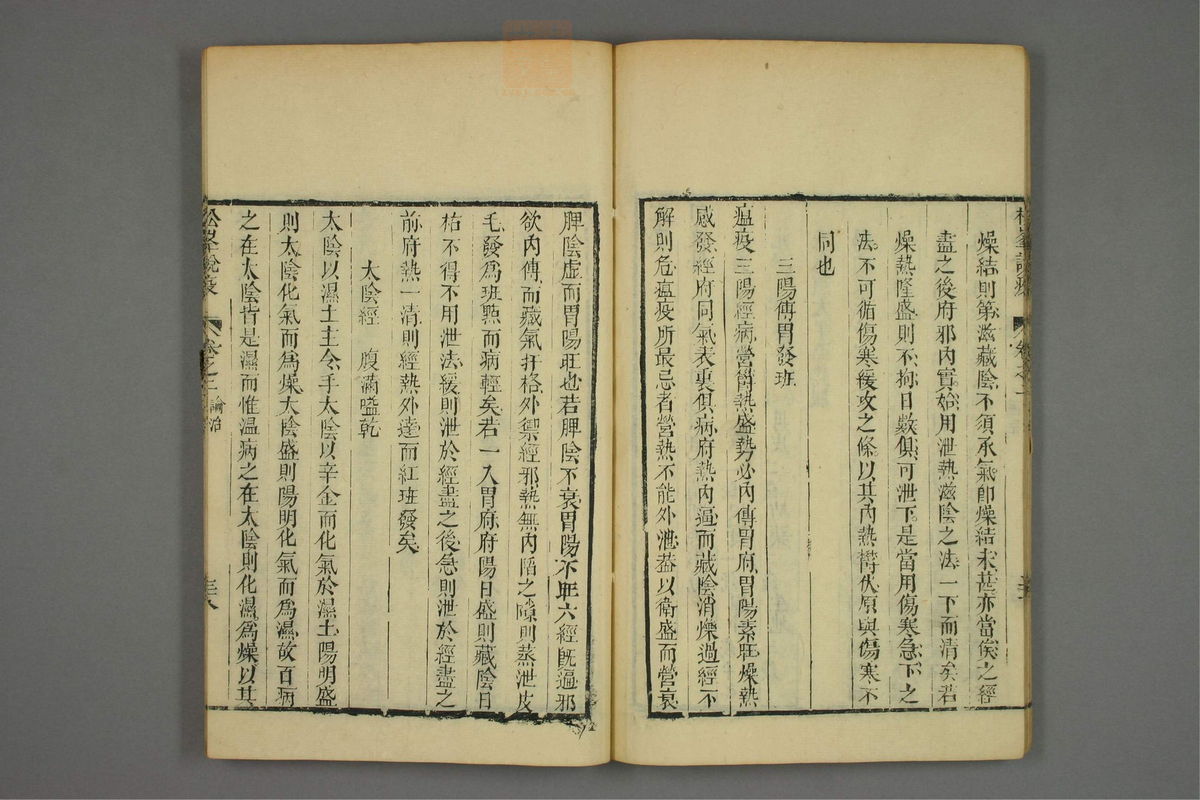 燥結則第滋藏陰不須承氣即燥結未甚亦當俟之經
盡之後府邪內實始用泄熱滋陰之法一下而清矣若
燥熱隆盛則不拘日數俱可泄下是當用傷寒急下之
法不可循傷寒緩攻之條以其內熱欝伏原與傷寒不
同也
三陽傳胃發班
瘟疫三陽經病營欝熱盛勢必內傳胃府胃陽素旺燥熱
感發經府同氣表裏俱病府熱內逼而藏陰消燥過經不
解則危瘟疫所最忌者營熱不能外泄葢以衛盛而營衰
脾陰虛而胃陽旺也若脾陰不衰胃陽不旺六經既遍邪
欲內傳而藏氣扞格外禦經邪熱無內陷之隙則蒸泄皮
毛發爲班㸃而病輕矣若一入胃府府陽日盛則藏陰日
枯不得不用泄法緩則泄於經盡之後急則泄於經盡之
前府熱一清則經熱外達而紅班發矣
大陰經 腹滿嗌乾
太陰以濕土主令手太陰以辛金而化氣於濕土陽明盛
則太陰化氣而爲燥大陰盛則陽明化氣而爲濕故百病
之在太陰皆是濕而惟温病之在太陰則化濕爲燥以其
松峯說疫 卷之二 論治